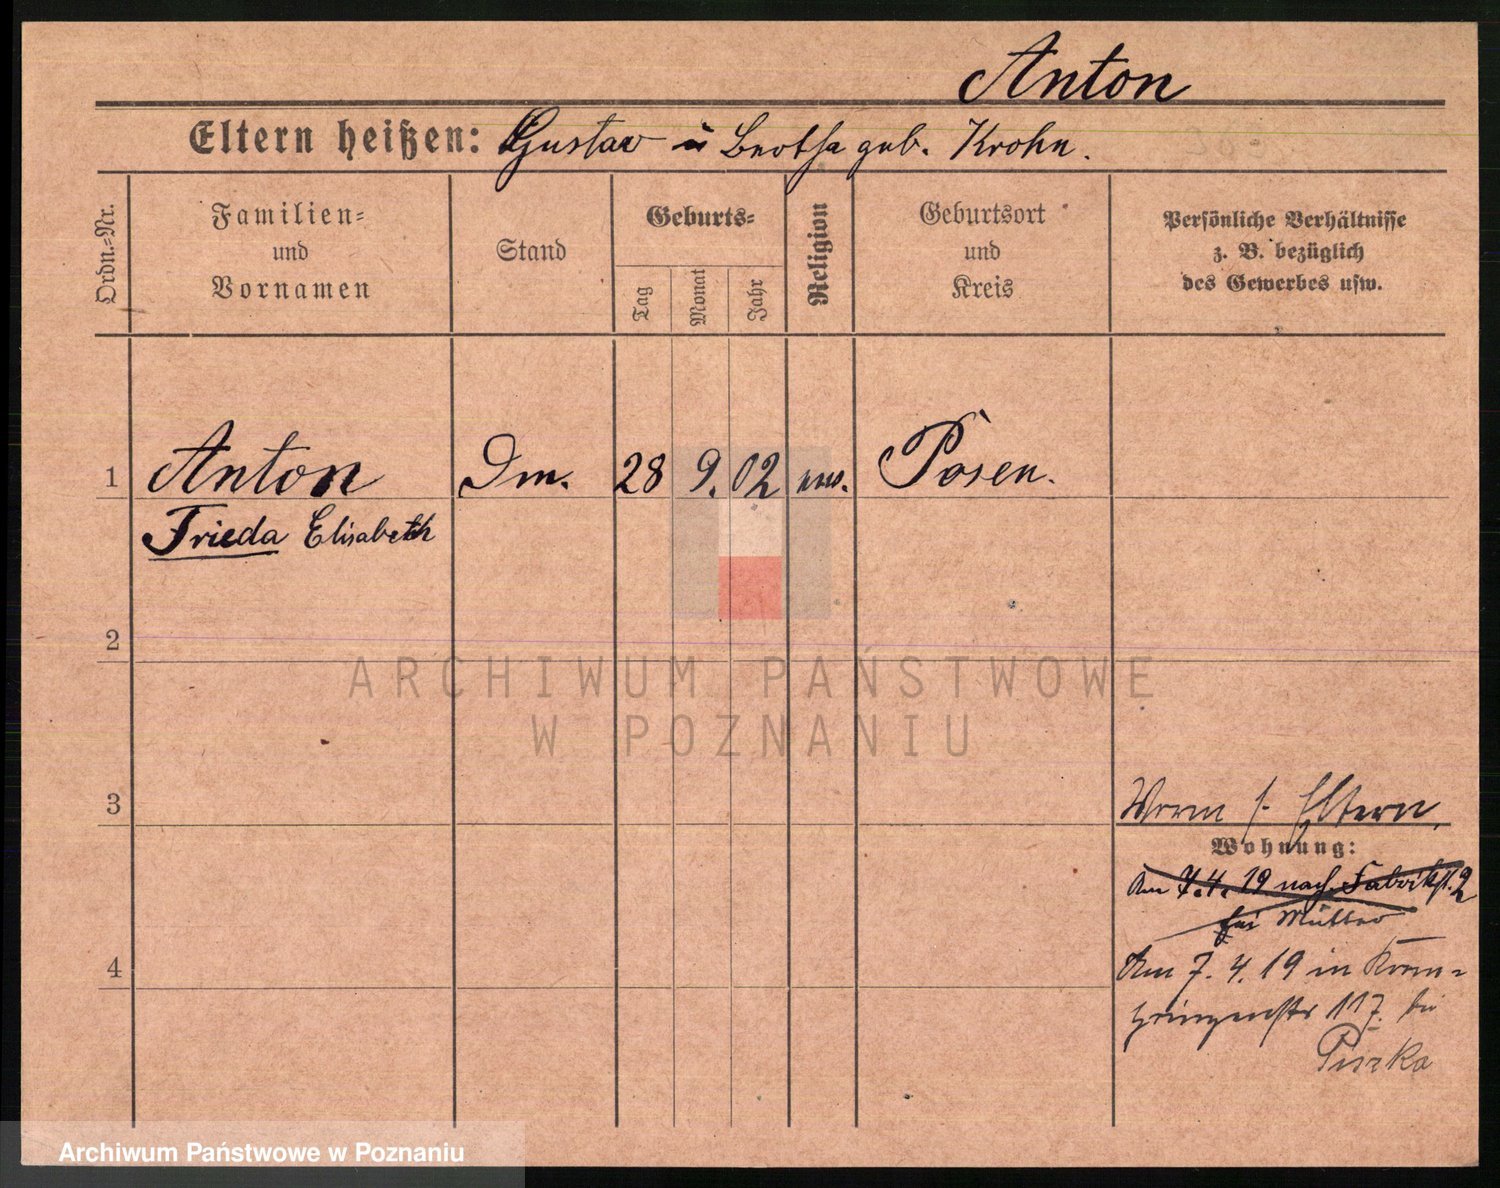 Anton
Eltern heißen: Gustav u Bertha geb. Krohn.
Ordn.=Nr.
Familien=
und
Vornamen
Stand
Geburts=
Tag
Monat
Jahr
Religion
Geburtsort
und
Kreis
Persönliche Verhältnisse
z. B. bezüglich
des Gewerbes usw.
1 Anton Dm. 28 9. 02 Posen.
Frieda Elisabeth
2
ARCHIWUM PAŃSTWOWE
W POZNANIU
3
Eltern.
Wohnung:
Am 7.4.19 nach Fabrikst. 2
bei Mutter
4
Am 7.4.19 in Kron=
prinzenstr 117. bei
Piszka
Archiwum Państwowe w Poznaniu